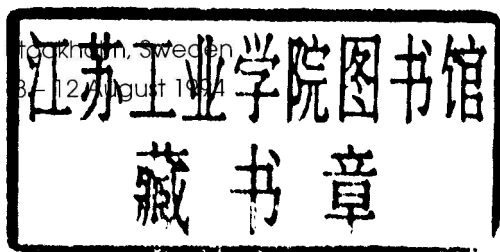 Stockholm, Sweden
8 – 12 August 1994
江苏工业学院图书馆
藏书章